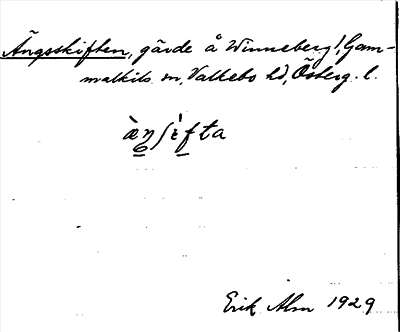 Ängsskiften, gärde å Winneberg!, Gam-
malkils sn, Valkebo hd, Österg. l.
æ̀ŋʃɛ̀fta
Erik Alm 1929